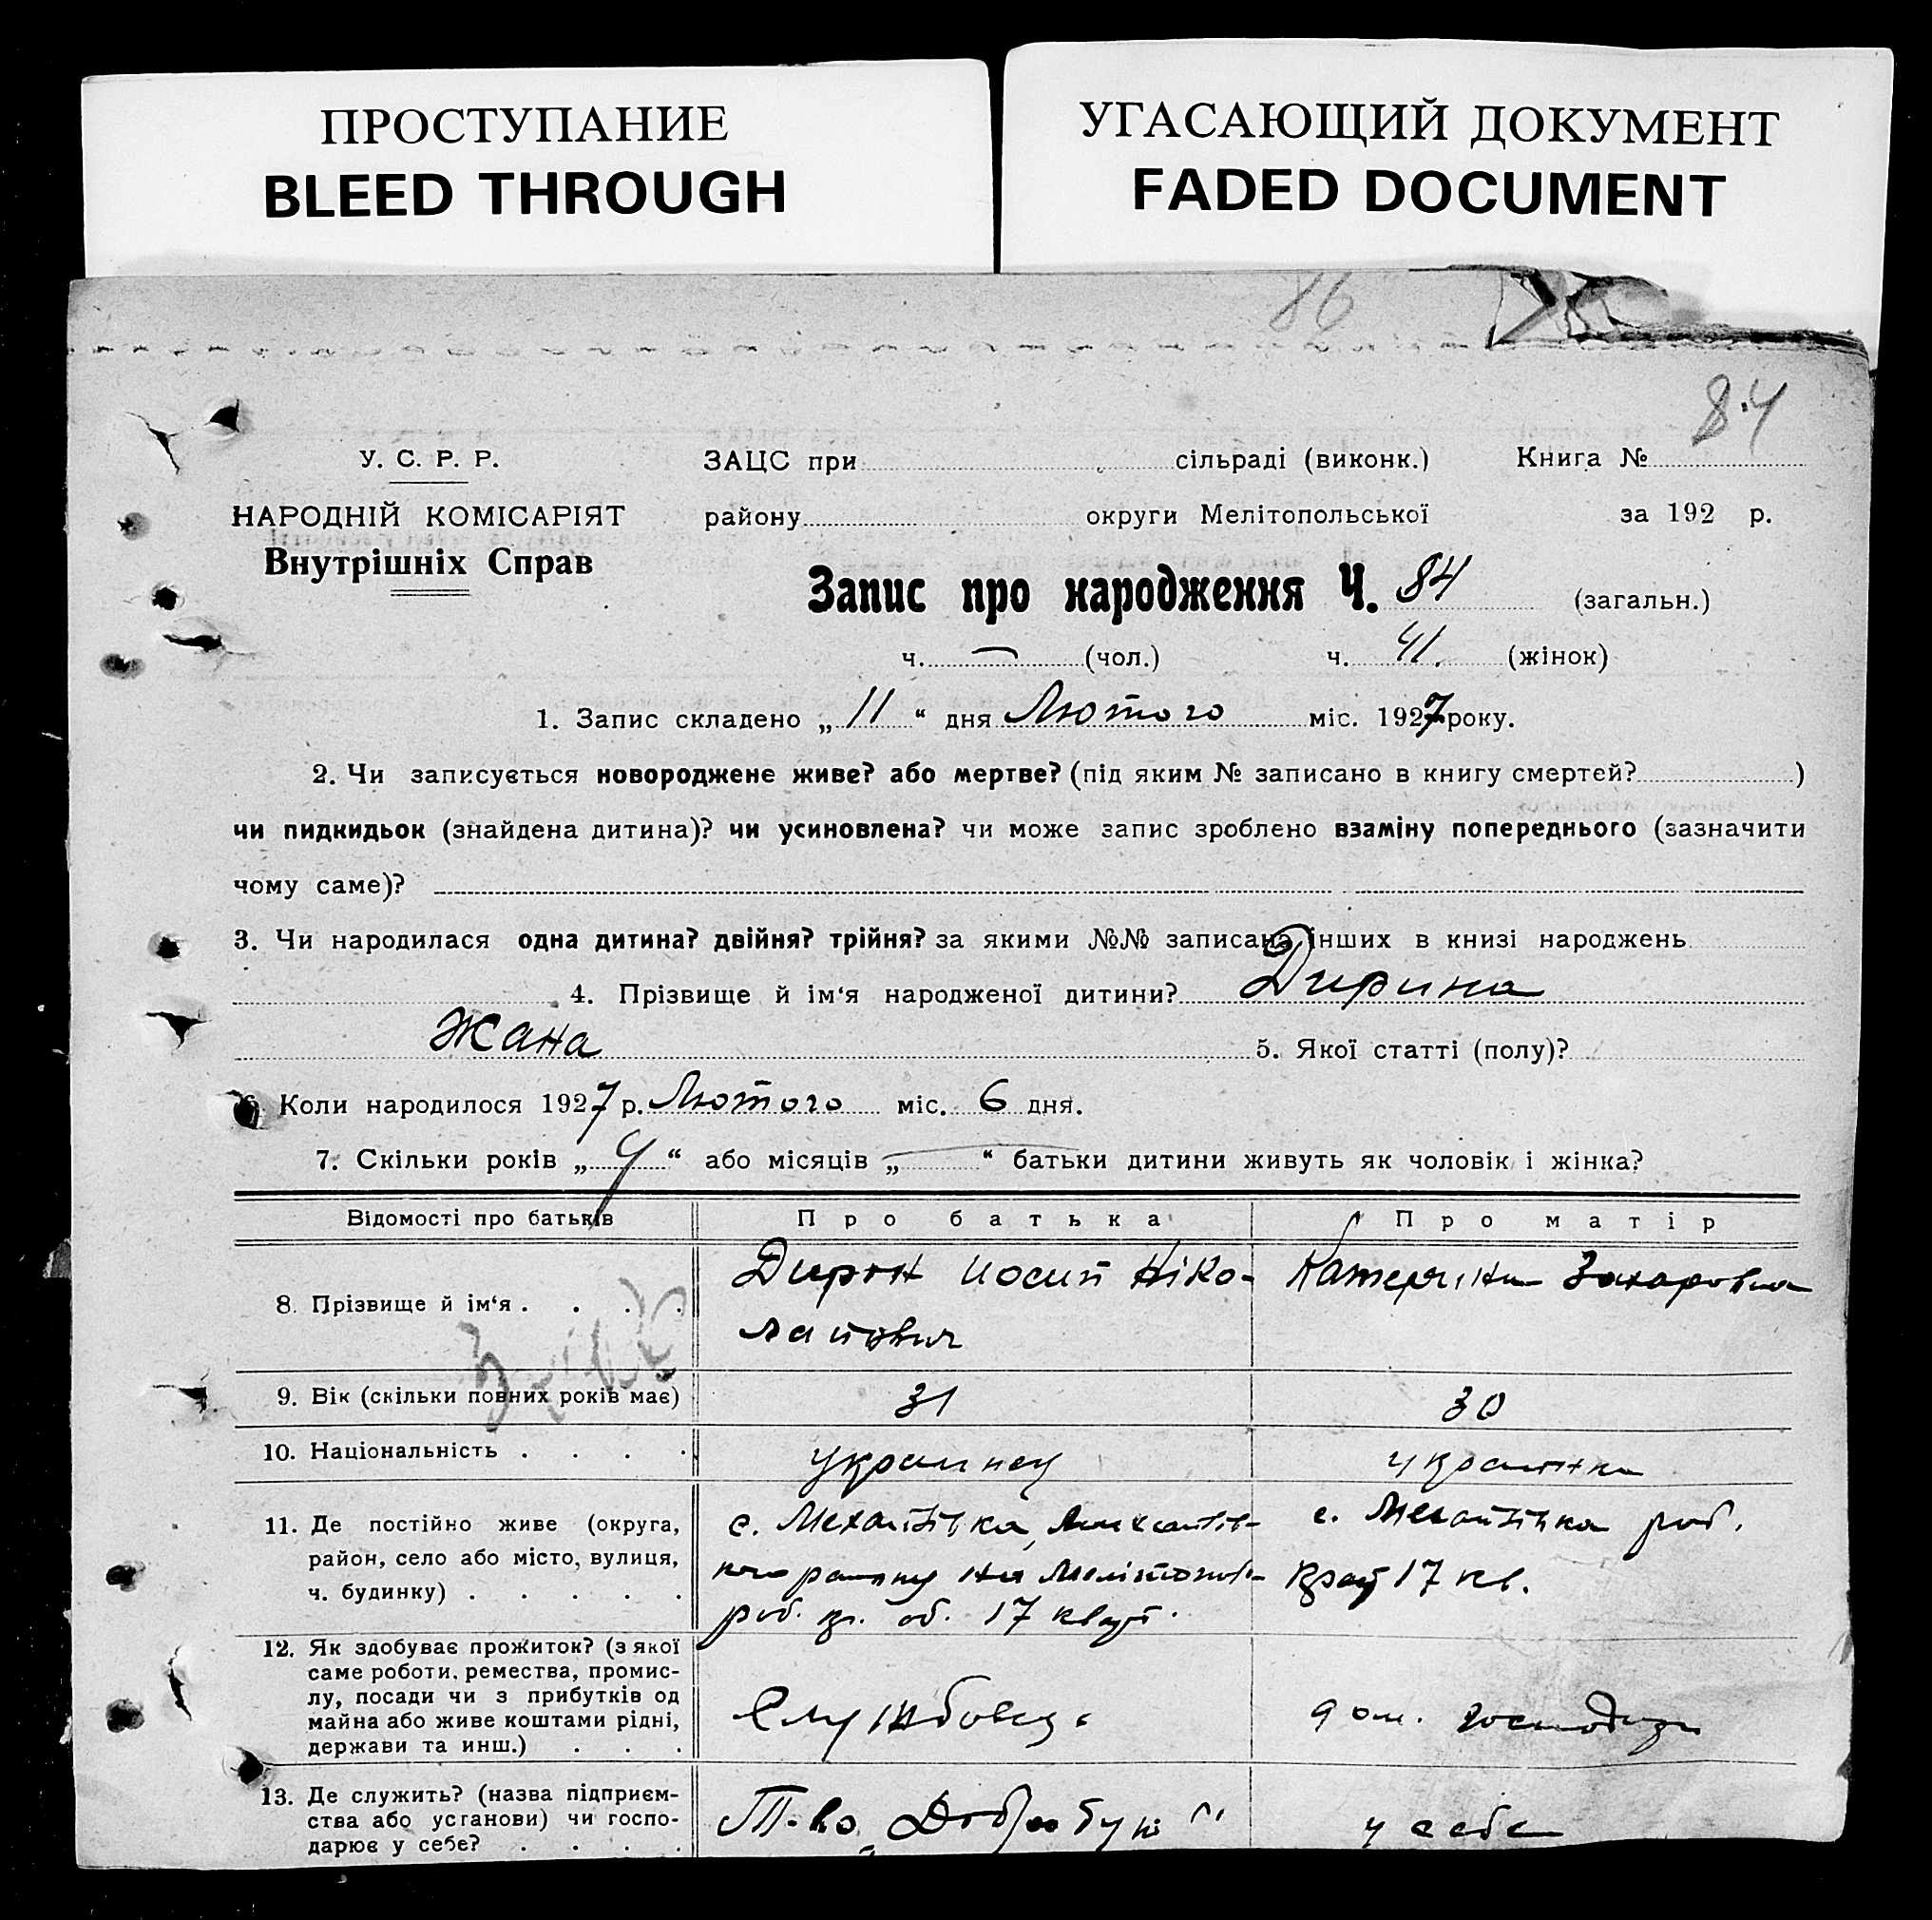 ПРОСТУПАНИЕ
BLEED THROUGH
УГАСАЮЩИЙ ДОКУМЕНТ
FADED DOCUMENT
86
84
У. С. Р. Р.
НАРОДНІЙ КОМІСАРІЯТ
Внутрішніх Справ
ЗАЦС при сільраді (виконк.) Книга №
району округи Мелітопольської за 192 р.
Запис про народження Ч. 84 (загальн.)
ч. — (чол.) ч. 41. (жінок)
1. Запис складено „ 11 “ дня Лютого міс. 1927 року.
2. Чи записується новороджене живе? або мертве? (під яким № записано в книгу смертей? )
чи пидкидьок (знайдена дитина)? чи усиновлена? чи може запис зроблено взаміну попереднього (зазначити
чому саме)?
3. Чи народилася одна дитина? двійня? трійня? за якими №№ записана інших в книзі народжень
4. Прізвище й ім‘я народженої дитини? Дирина
Жана 5. Якої статті (полу)?
6. Коли народилося 1927 р. Лютого міс. 6 дня.
7. Скільки років „ 4 “ або місяців „ — “ батьки дитини живуть як чоловік і жінка?
Відомості про батьків Про батька Про матір
8. Прізвище й ім‘я . . . .
Дирин Иосип Ніко-
лайович
Катерина Захаровна
9. Вік (скільки повних років має) 31 30
10. Національність . . . . украинец украинка
11. Де постійно живе (округа,
район, село або місто, вулиця,
ч. будинку) . . . . .
с. Механтівка,
роб. 17 кварт.
с. роб.
17 кв.
12. Як здобуває прожиток? (з якої
саме роботи, ремества, промис-
лу, посади чи з прибутків од
майна або живе коштами рідні,
держави та инш.) . . .
Службовец
дом. господар
13. Де служить? (назва підприєм-
ства або установи) чи госпо-
дарює у себе? . . . .
Т-во „Добробут“
у себе